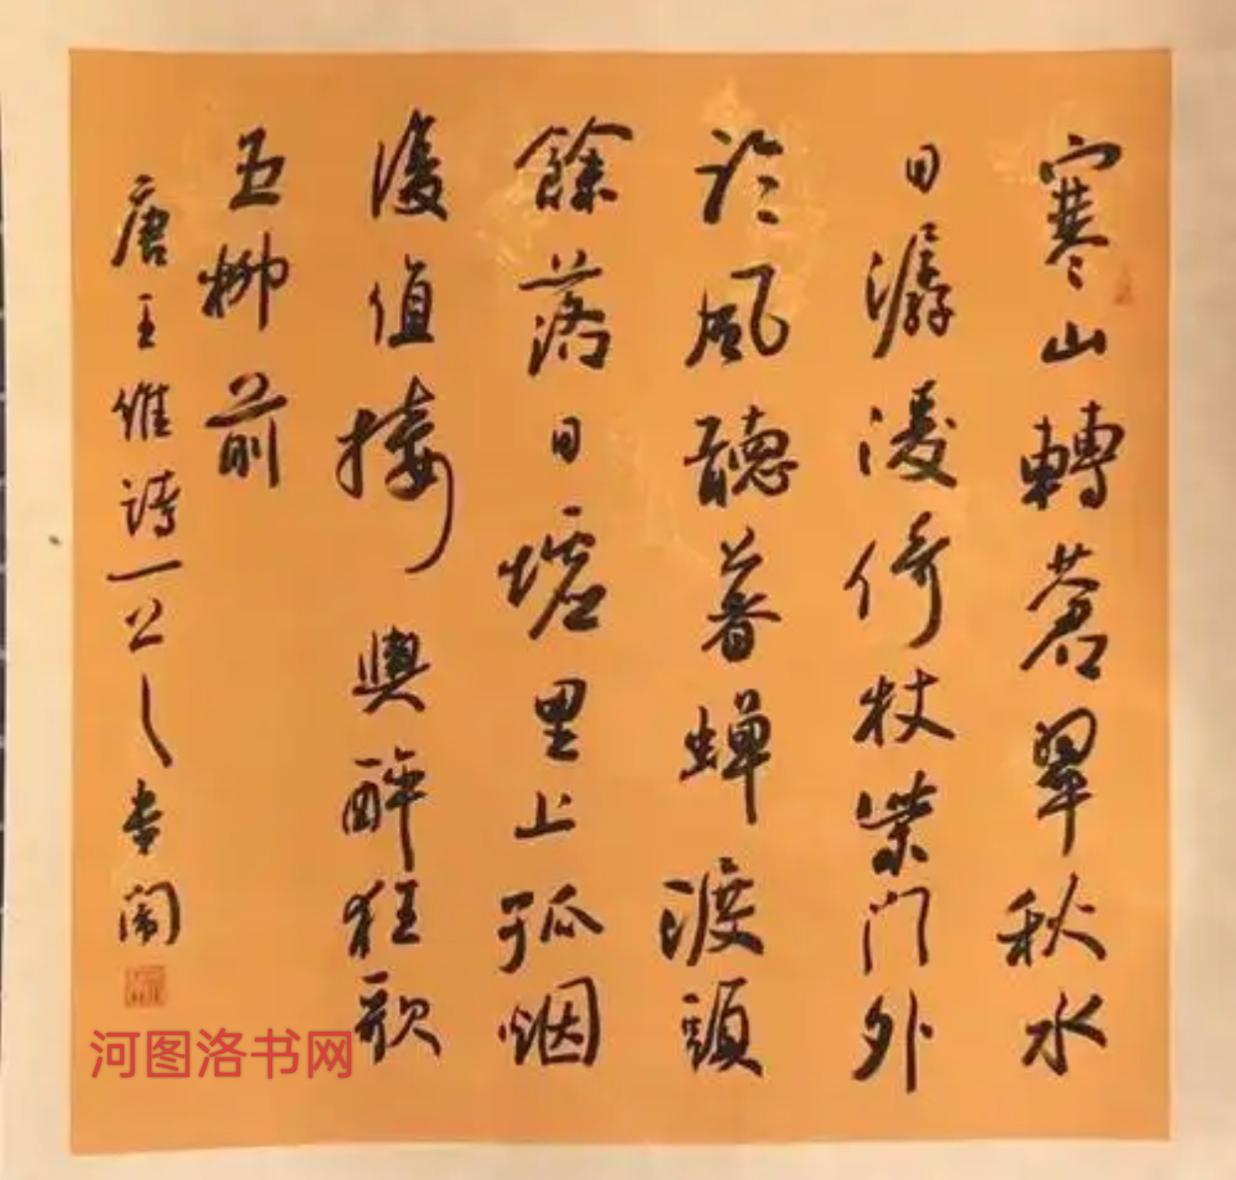 寒山轉蒼翠秋水
日潺湲倚杖柴門外
臨風聽暮蟬渡頭
餘落日墟里上孤烟
復值接輿醉狂歌
五柳前
唐王維詩一
河图洛书网